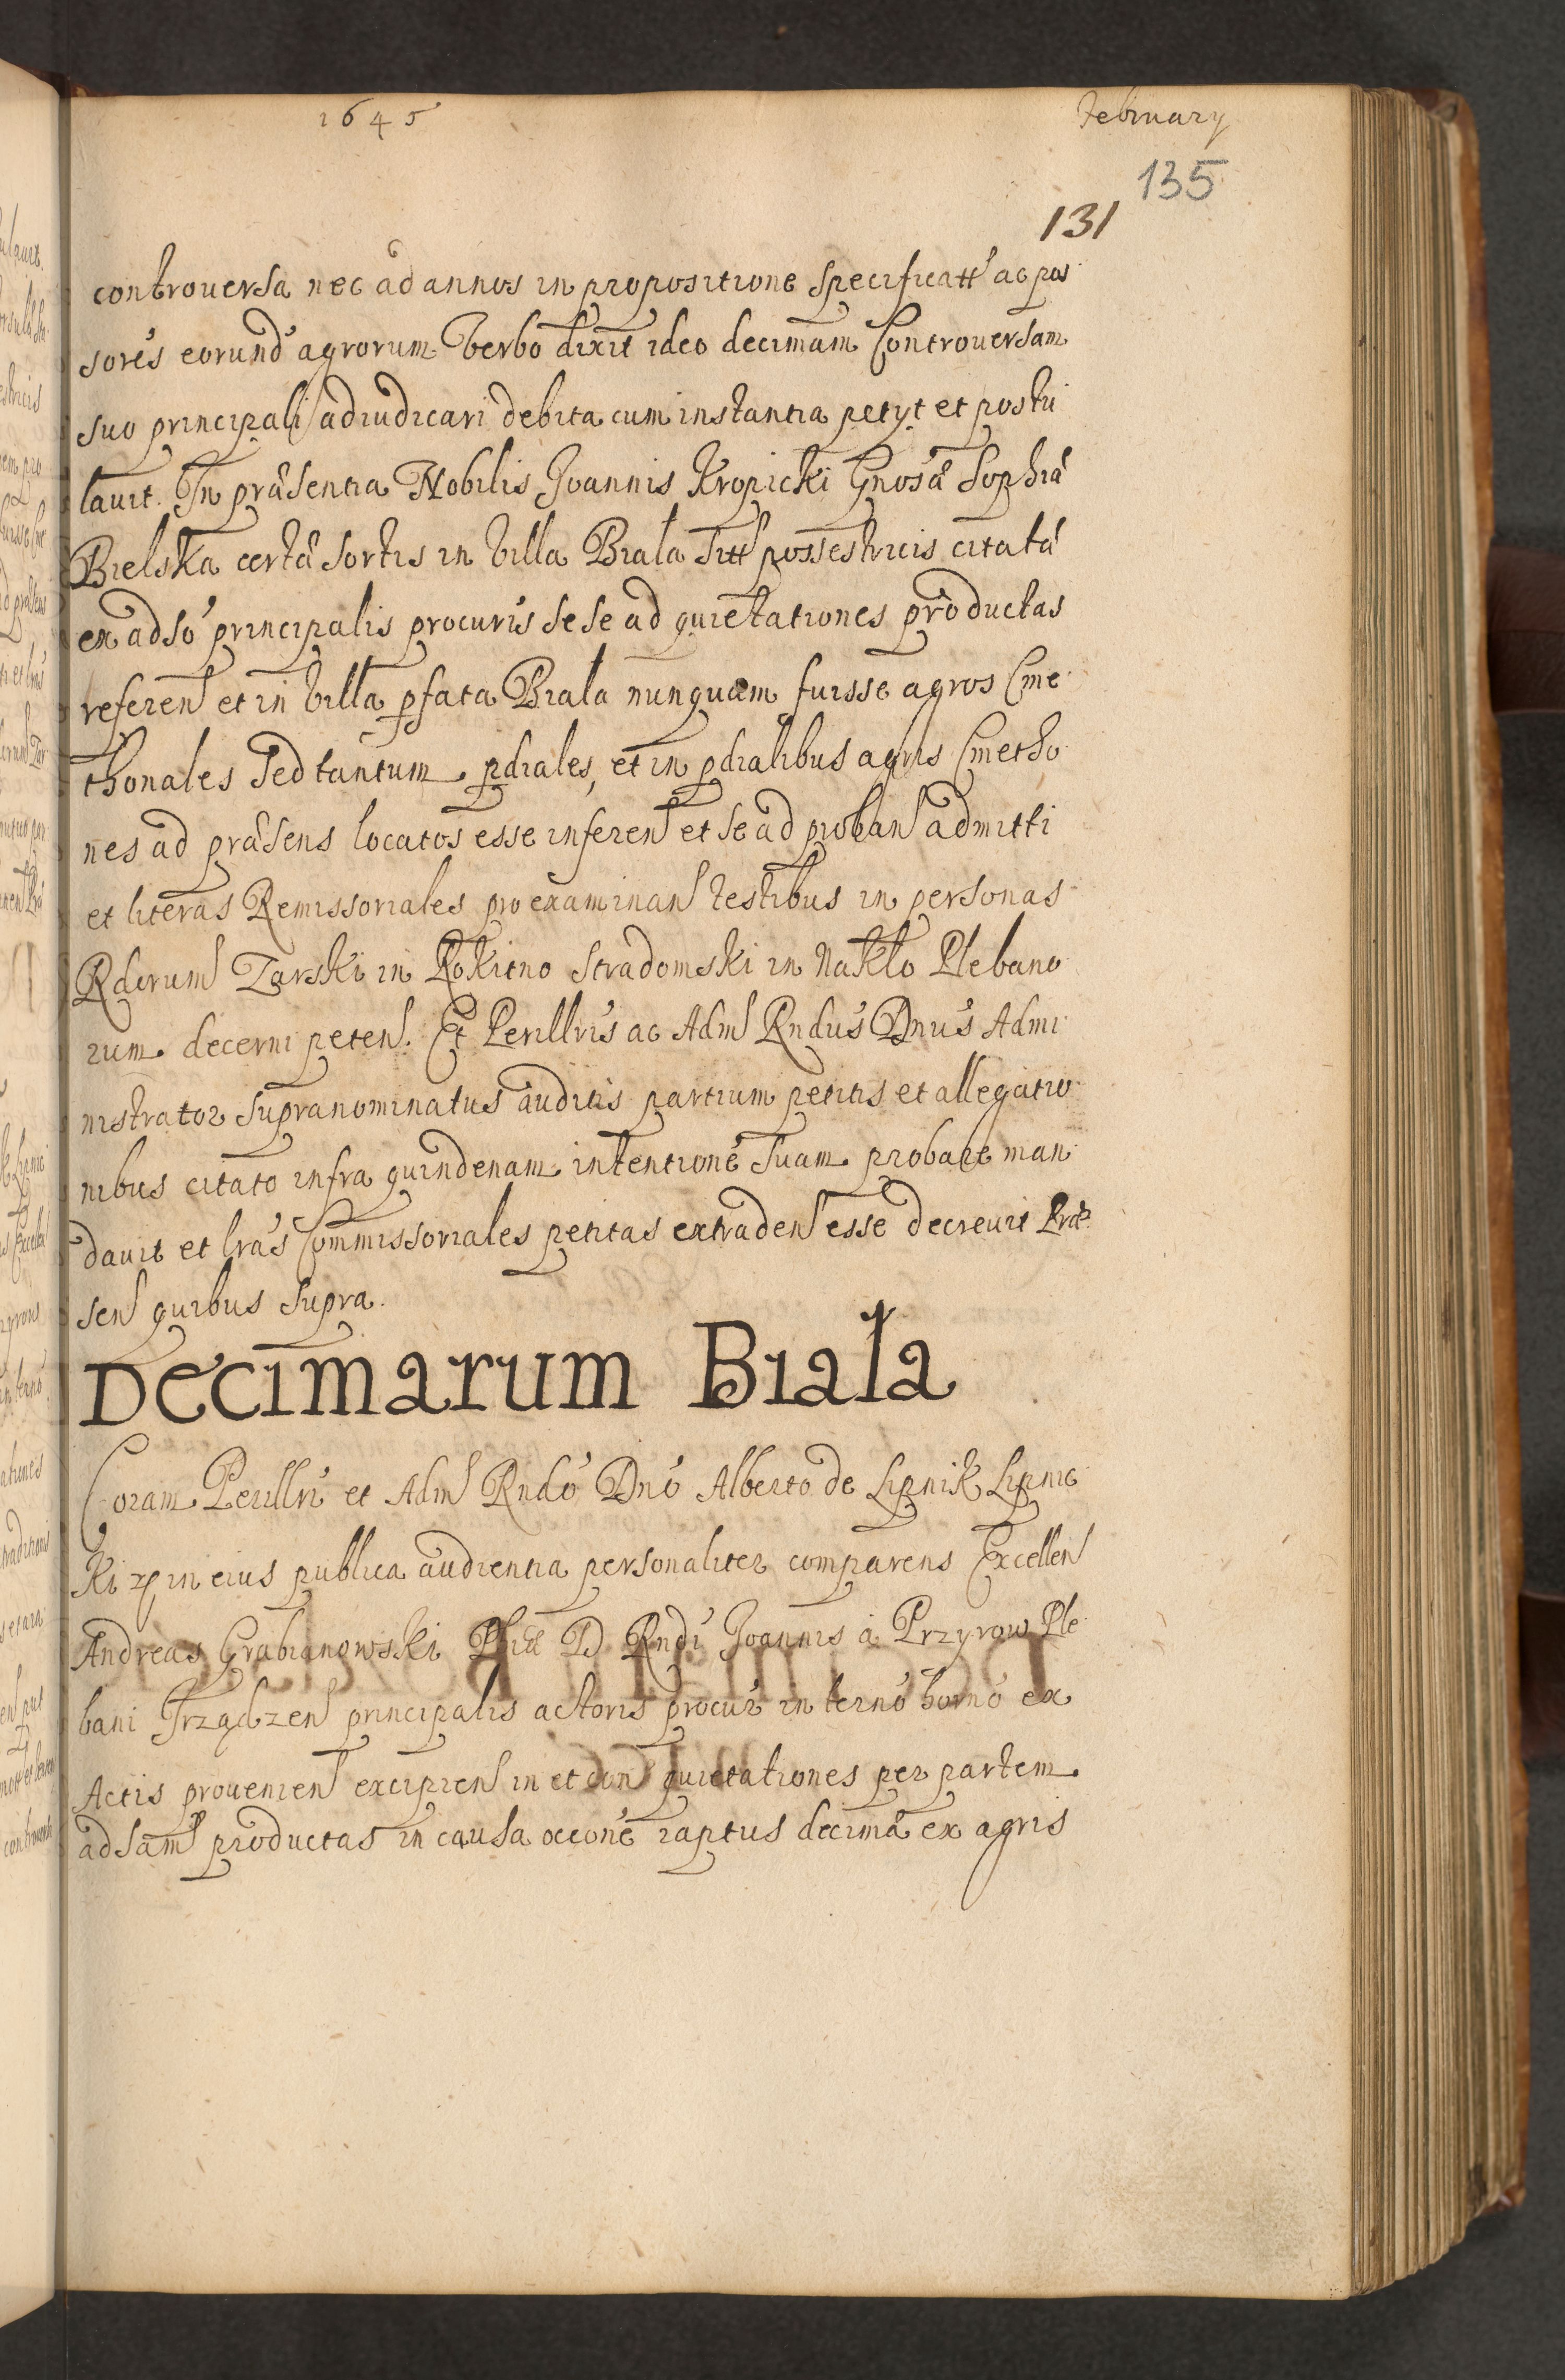 1645 February
135
131
controversa nec ad annos in propositione specificatt ac pos
sores eorund agrorum Verbo dixit ideo decimam Controversam
suo principali adiudicari debita cum instantia petyt et postu
lavit. In præsentia Nobilis Joannis Kropicki Gnosæ Sophiæ
Bielska certæ sortis in Villa Biala sitt possestricis citatæ
ex adso principalis procuris sese ad quietationes productas
referen et in Villa pfata Biala nunquam fuisse agros Cme
thonales Sed tantum pdiales, et in pdialibus agris Cmetho
nes ad præsens locatos esse inferen et se ad proban admitti
et literas Remissoriales pro examinan testibus in personas
Rdorum Zarski in Rokitno Stradomski in Naklo Plebano
rum decerni peten. Et Perillris ac Adm Rndus Dnus Admi
nistrator Supranominatus auditis partium petitis et allegatio
nibus citato infra quindenam intentione Suam probare man
davit et lras Commissoriales petitas extraden esse decrevit Præ
sen quibus supra.
Decimarum Biala
Coram Perillri et Adm Rndo Dno Alberto de Lipnik Lipnic
ki in eius publica audientia personaliter comparens Excellen
Andreas Grabianowski D Rndi Joannis a Przyrow Ple
bani Irządzen principalis actoris procur in termo horno ex
Actis provenien excipien in et con quietationes per partem
adsam productas in causa occone raptus decimæ ex agris